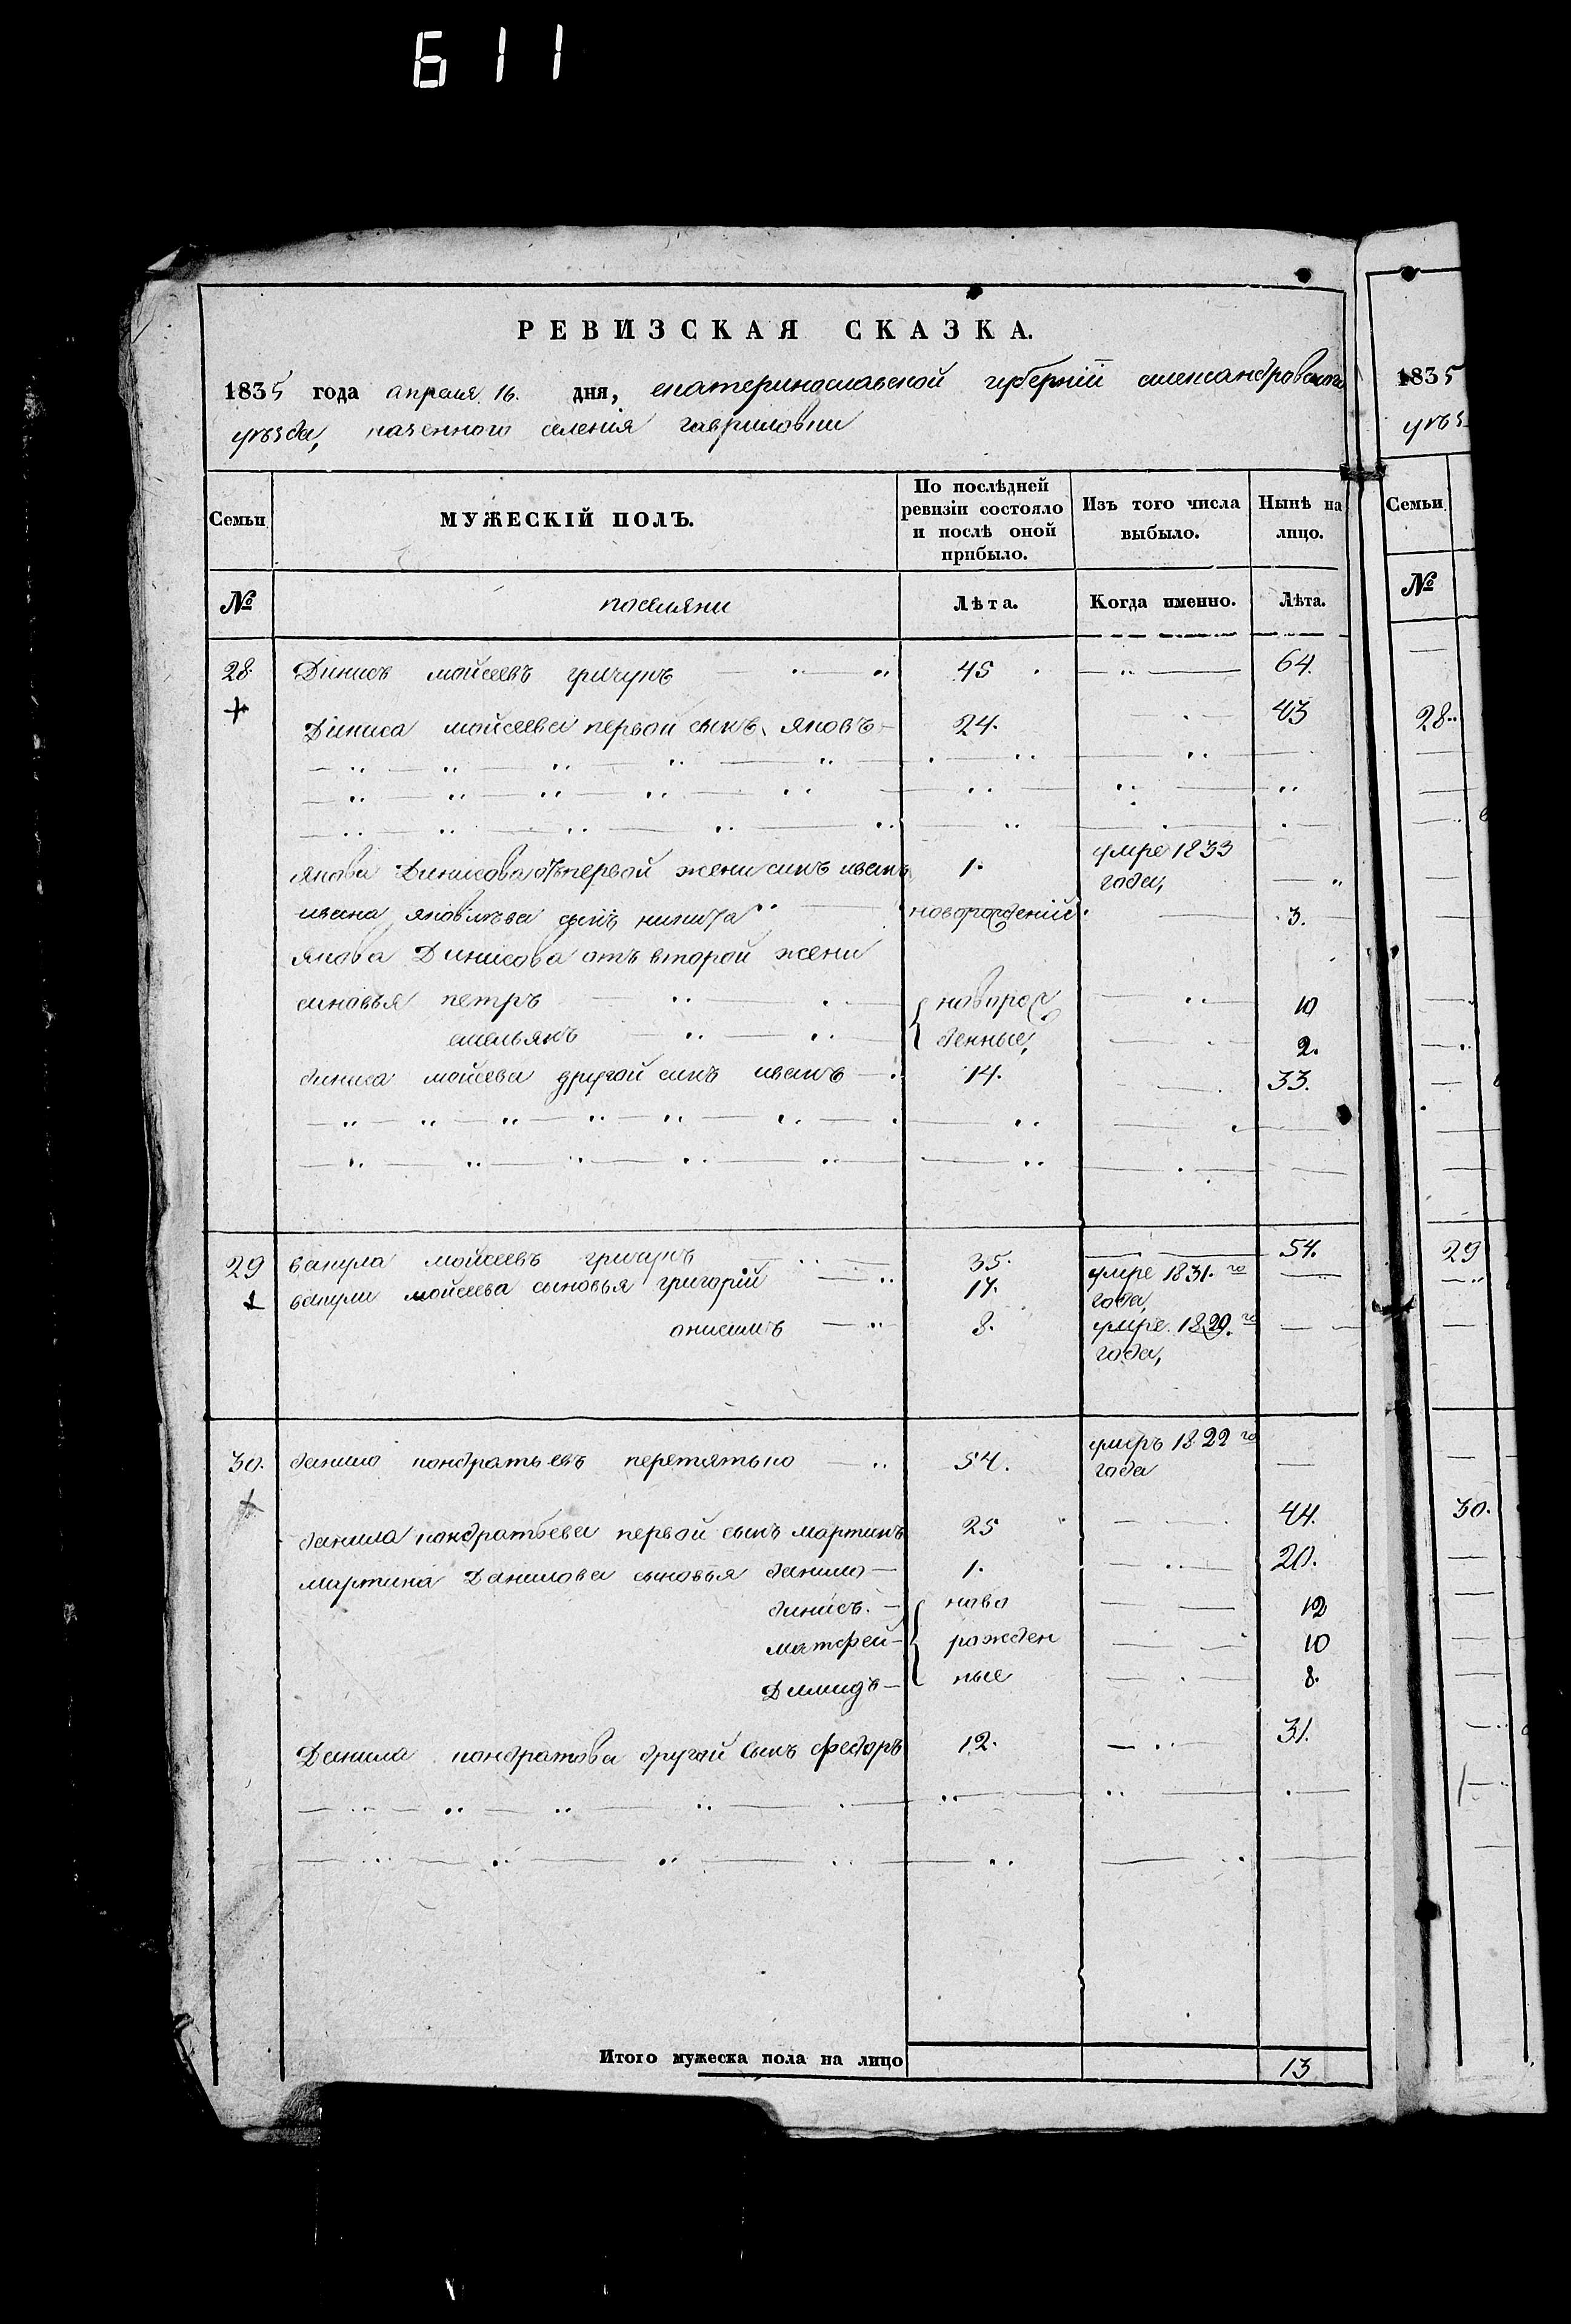 611
РЕВИЗСКАЯ СКАЗКА.
1835 года апреля 16. дня, екатеринославской губернїи александровского
уѣзда, казенного селенія гавриловки
Семьи
МУЖЕСКІЙ ПОЛЪ.
По послѣдней ревизіи состояло и послѣ оной прибыло.
Изъ того числа выбыло.
Нынѣ на лицо.
№
поселяни
Лѣта.
Когда именно.
Лѣта.
28. Динисъ мойсеевъ гричукъ 45 64.
Диниса мойсеева первой сынъ яковъ 24. 43
якова Динисова отъ первой жени синъ иванъ 1. умре 1833 года,
ивана яковлева сынъ никита новорожденїй 3.
якова Динисова отъ второй жени
синовъя петръ новорож 10
емельянъ денные, 2.
диниса мойсева другой синъ иванъ 14. 33.
29 вакула мойсеевъ гричукъ 35. 54.
вакули мойсеева сыновья григорїй 17. умре 1831.го года,
онисимъ 8. умре 1829.го года,
30. данило кондратьевъ перетятько 54. умеръ 1822го года
данила кондратьева первой сынъ мартинъ 25 44.
мартина Данилова сыновья данило 1. 20.
динисъ. ново 12
матфей рожден 10
Демидъ ные 8.
Данила кондратова другой сынъ федоръ 12. 31.
Итого мужеска пола на лицо 13
1835
уѣз
Семьи
№
28
29
30.